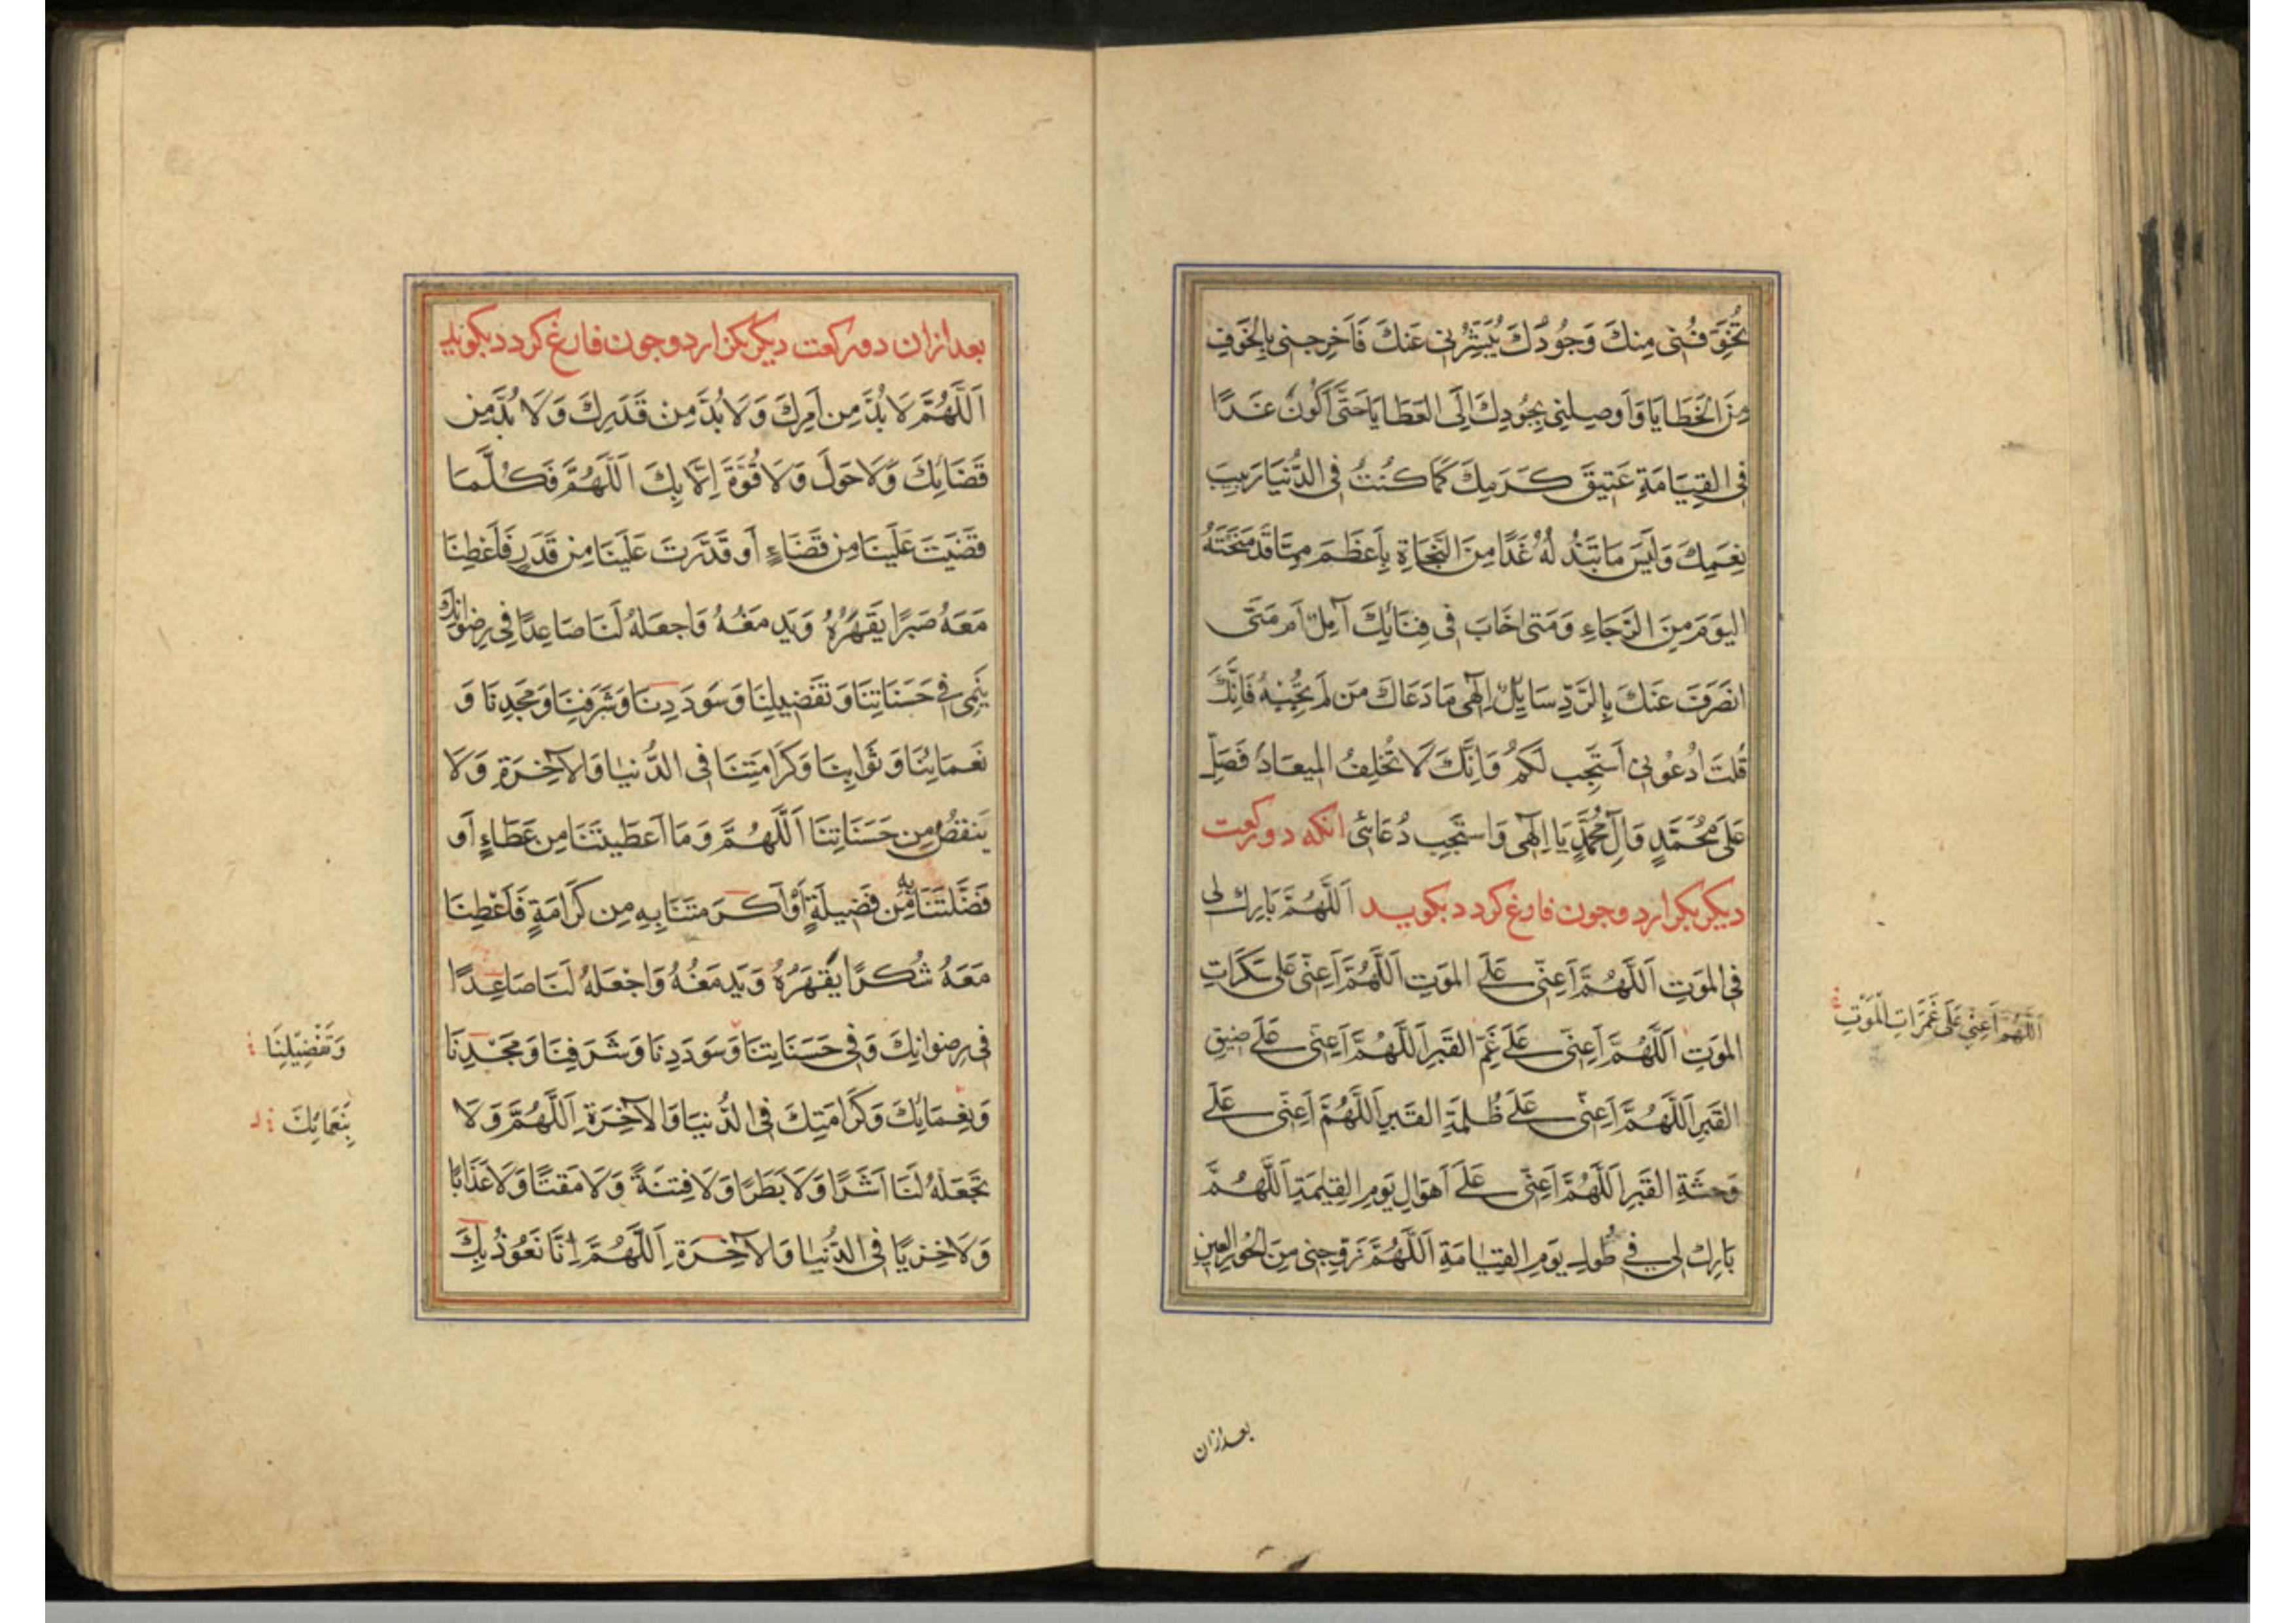 تُخَوِّفُنِی مِنْكَ وَجُودُكَ یُبَشِّرُنِی عَنْكَ فَاَخْرِجْنِی بِالْخَوْفِ
مِنَ الْخَطَایَا وَاَوْصِلْنِی بِجُودِكَ اِلَی الْعَطَایَا حَتَّی اَكُونَ غَدًا
فِی الْقِیَامَةِ عَتِیقَ كَرَمِكَ كَمَا كُنْتُ فِی الدُّنْیَا رَبِیبَ
نِعَمِكَ وَلَیْسَ مَا تَبْذُلُهُ غَدًا مِنَ النَّجَاةِ بِاَعْظَمَ مِمَّا قَدْ مَنَحْتَهُ
الیَوْمَ مِنَ الرَّجَاءِ وَمَتٰی خَابَ فِی فِنَائِكَ آمِلٌ اَمْ مَتَی
انْصَرَفَ عَنْكَ بِالرَّدِّ سَایِلٌ اِلٰهِی مَا دَعَاكَ مَنْ لَمْ تُجِبْهُ فَاِنَّكَ
قُلْتَ ادْعُونِی اَسْتَجِبْ لَكُمْ وَاِنَّكَ لَا تُخْلِفُ المِیعَادَ فَصَلِّ
عَلَی مُحَمَّدٍ وَآلِ مُحَمَّدٍ یَا اِلٰهِی وَاسْتَجِبْ دُعَائِی انكه دو ركعت
دیكر بكزارد وجون فارغ كردد بكوید اَللّٰهُمَّ بَارِك لِی
فِی المَوْتِ اَللّٰهُمَّ اَعِنِّی عَلَی المَوْتِ اَللّٰهُمَّ اَعِنِّی عَلَی سَكَرَاتِ
المَوْتِ اَللّٰهُمَّ اَعِنِّی عَلَی غَمِّ القَبْرِ اَللّٰهُمَّ اَعِنِّی عَلَی ضِیقِ
القَبْرِ اَللّٰهُمَّ اَعِنِّی عَلَی ظُلْمَةِ القَبْرِ اَللّٰهُمَّ اَعِنِّی عَلَی
وَحْشَةِ القَبْرِ اَللّٰهُمَّ اَعِنِّی عَلَی اَهْوَالِ یَوْمِ القِیٰمَةِ اَللّٰهُمَّ
بَارِك لِی فِی طُولِ یَوْمِ القِیَامَةِ اَللّٰهُمَّ زَوِّجْنِی مِنَ الحُورِ العِینِ
اَللّٰهُمَّ اَعِنِّی عَلَی غَمَرَاتِ المَوْتِ
بعد ازان
بعد ازان دو ركعت دیكر بكزارد وجون فارغ كردد بكوید
اَللّٰهُمَّ لَا بُدَّ مِن اَمْرِكَ وَلَا بُدَّ مِن قَدَرِكَ وَلَا بُدَّ مِن
قَضَائِكَ وَلَا حَوْلَ وَلَا قُوَّةَ اِلَّا بِكَ اَللّٰهُمَّ فَكُلَّمَا
قَضَیْتَ عَلَیْنَا مِن قَضَاءٍ اَو قَدَّرْتَ عَلَیْنَا مِن قَدَرٍ فَاَعْطِنَا
مَعَهُ صَبْرًا یَقْهَرُهُ وَیَدْمَغُهُ وَاجْعَلْهُ لَنَا صَاعِدًا فِی رِضْوَانِكَ
یَنْمِی فِی حَسَنَاتِنَا وَتَفْضِیلِنَا وَسَوْدَدِنَا وَشَرَفِنَا وَمَجْدِنَا وَ
نَعْمَائِنَا وَثَوَابِنَا وَكَرَامَتِنَا فِی الدُّنْیَا وَالْآخِرَةِ وَلَا
یَنْقُصُ مِن حَسَنَاتِنَا اَللّٰهُمَّ وَمَا اَعْطَیْتَنَا مِن عَطَاءٍ اَو
فَضَّلْتَنَا بِهِ مِن فَضِیلَةٍ اَوْ اَكْرَمْتَنَا بِهِ مِن كَرَامَةٍ فَاَعْطِنَا
مَعَهُ شُكْرًا یَقْهَرُهُ وَیَدْمَغُهُ وَاجْعَلْهُ لَنَا صَاعِدًا
فِی رِضْوَانِكَ وَفِی حَسَنَاتِنَا وَسَوْدَدِنَا وَشَرَفِنَا وَمَجْدِنَا
وَنِعْمَائِكَ وَكَرَامَتِكَ فِی الدُّنْیَا وَالْآخِرَةِ اَللّٰهُمَّ وَلَا
تَجْعَلْهُ لَنَا اَشَرًا وَلَا بَطَرًا وَلَا فِتْنَةً وَلَا مَقْتًا وَلَا عَذَابًا
وَلَا خِزْیًا فِی الدُّنْیَا وَالْآخِرَةِ اَللّٰهُمَّ اِنَّا نَعُوذُ بِكَ
وَتَفْضِیلِنَا
بِنَعْمَائِكَ